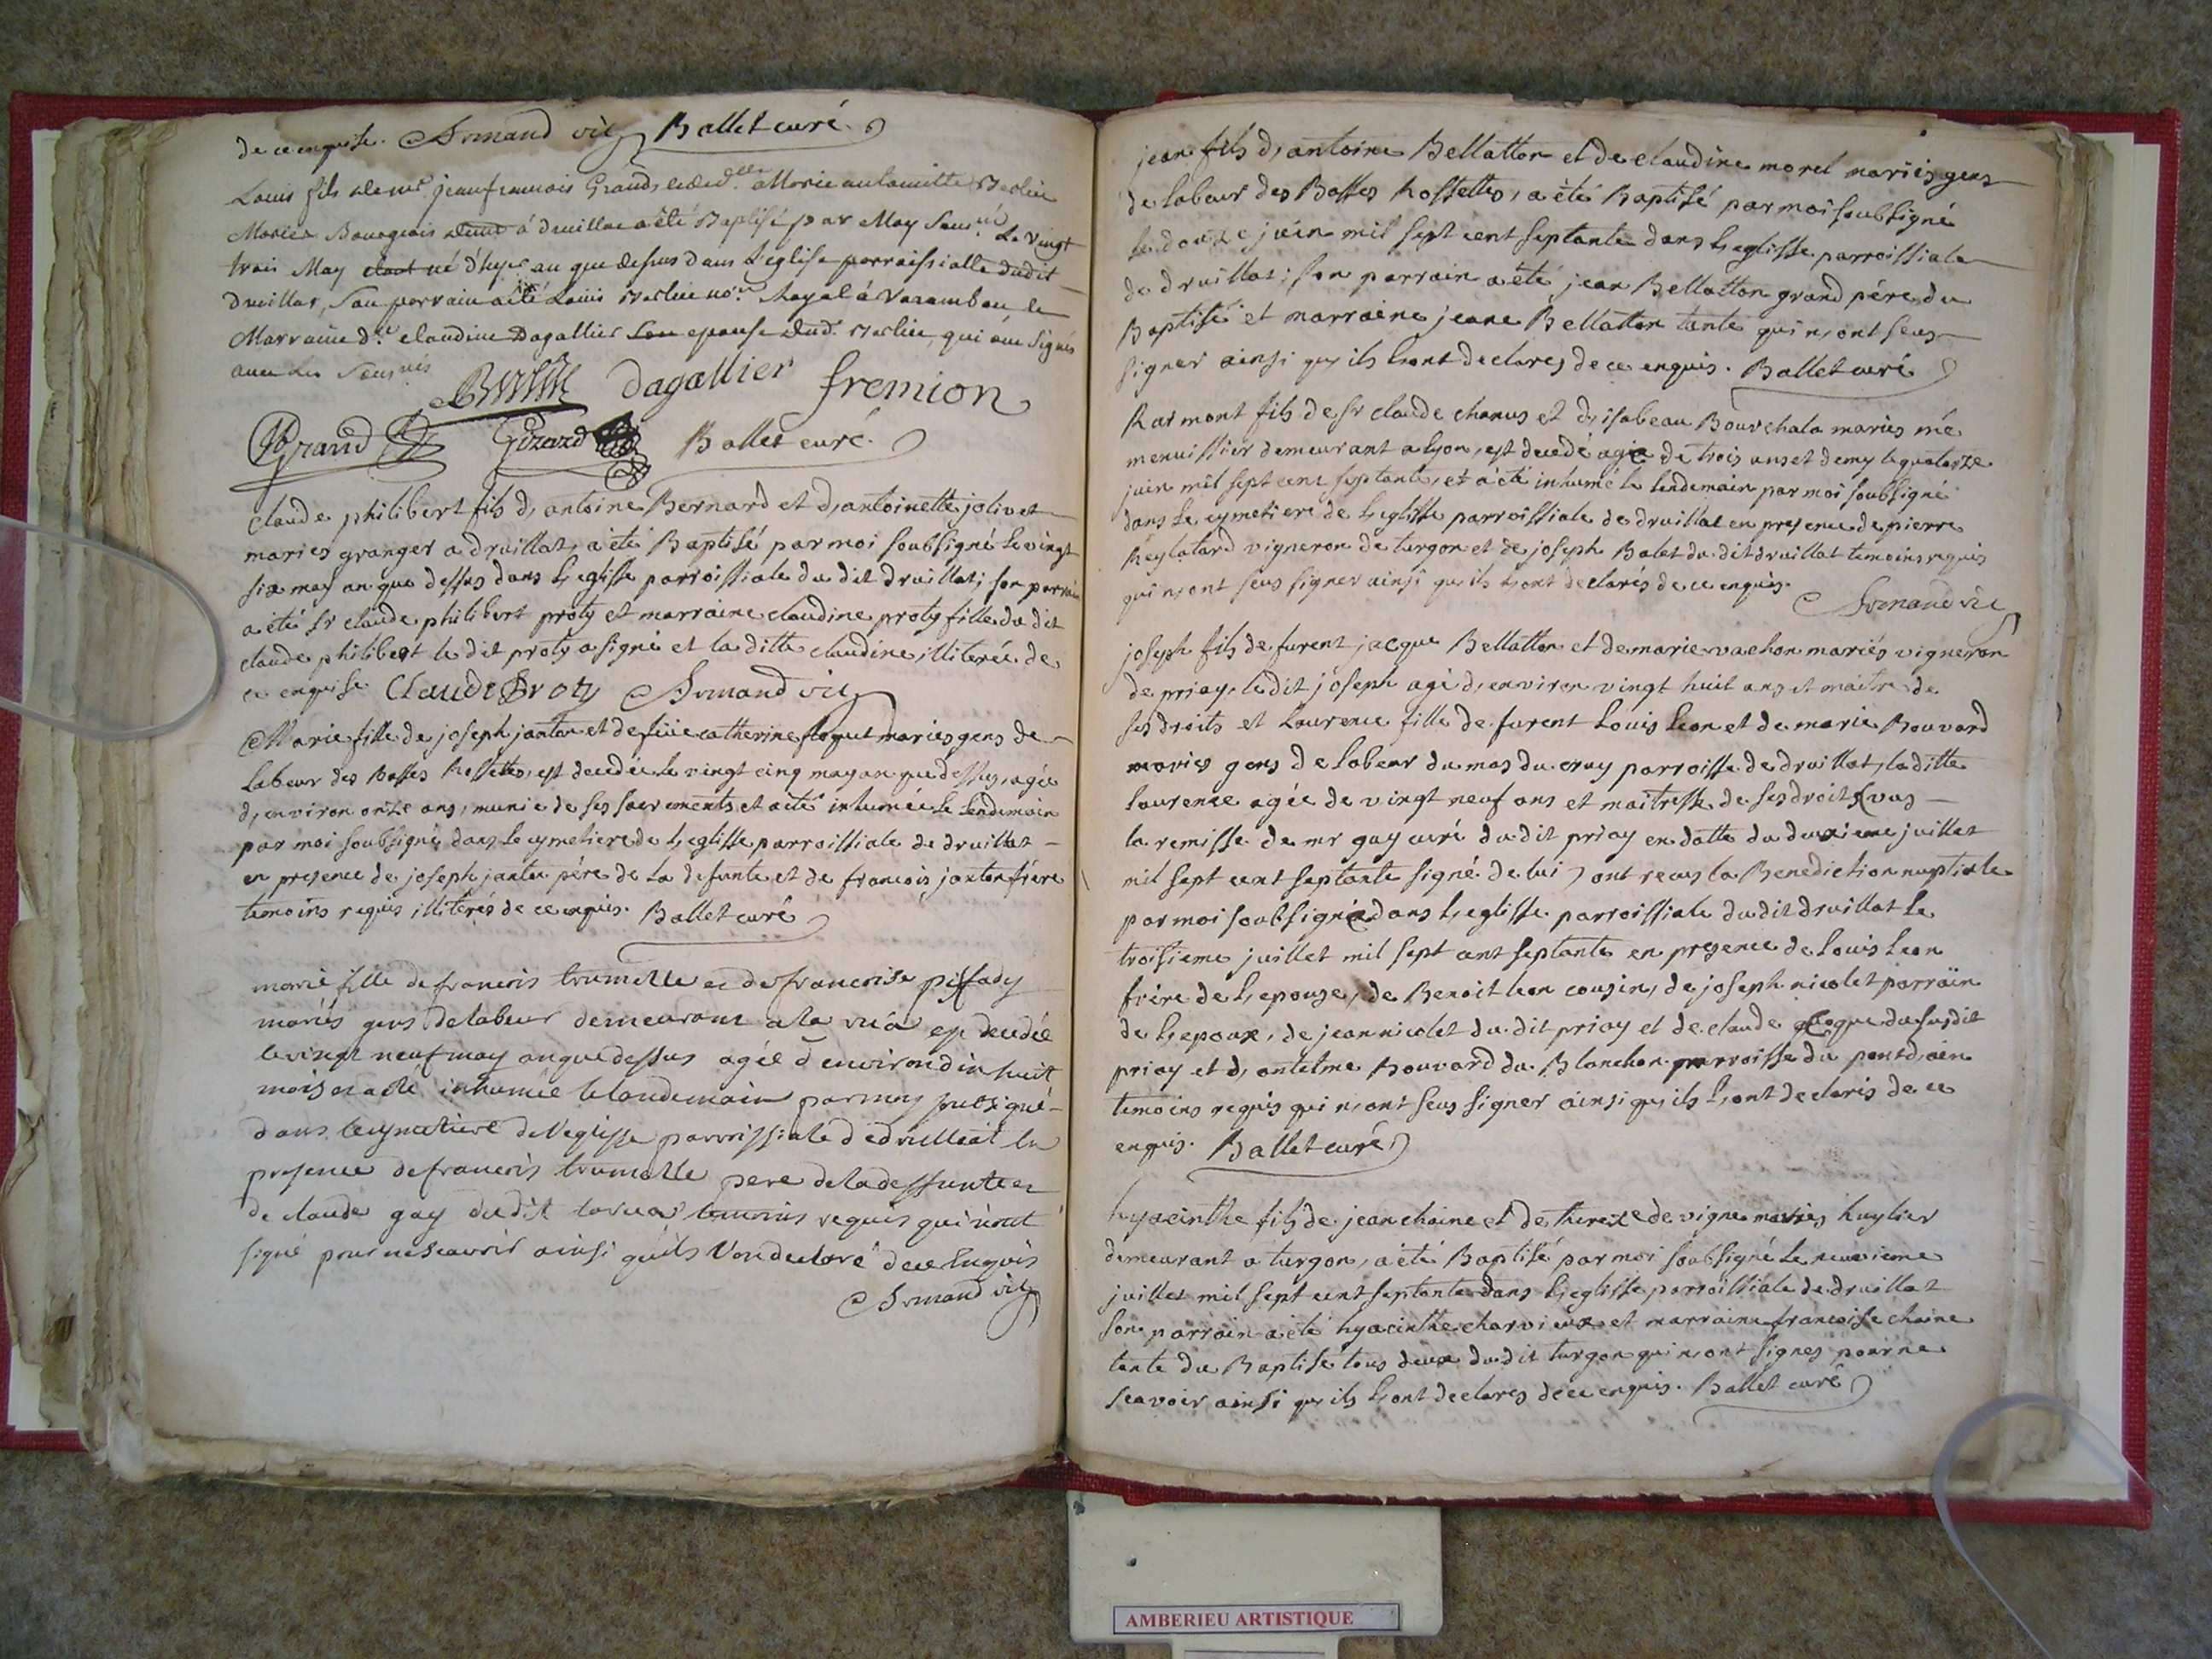 de ce enquise. Armand vic Ballet curé
Louis fils de mr. jean francois Grand, et de dlle Marie antoinette
Mariés Bourgeois a druillat a été Baptisé par Moy Sousné Le vingt
trois May né d'hyer an que dessus dans L'eglise parroissialle dudit
druillat, Son parrain a été Louis Royal á Varambon, la
Marraine de claudine Dagallier Son epouse dud. qui ont Signés
avec Les Sousnés
dagallier fremion
Grand Girard Ballet curé
claude philibert fils d, antoine Bernard et d, antoinette jolivet
maries granger a druillat, a été Baptisé par moi soubsigné le vingt
six may an que dessus dans L, eglisse parroissiale du dit druillat; son parrain
a été sr claude philibert proty et marraine claudine proty fille du dit
claude philibert le dit proty a signé et la ditte claudine illiterée de
ce enquise Claude Proty Armand vic
Marie fille de joseph janton et de feüe catherine maries gens de
Labeur des Basses Rossettes, est decedée le vingt cinq may an que dessus, agée
d, environ onze ans, munie de ses sacrements et a été inhumée Le Lendemain
par moi soubsigné dans Le cymetiere de L, eglisse parroissiale de druillat
en presence de joseph janton pére de la defunte et de francois janton frére
temoins requis illiterés de ce enquis. Ballet curé
marie fille de francois trumelle et de francoise pissady
mariés gens de labeur demeurant a la rüa est decedée
le vingt neuf may an que dessus agée d'environ dix huit
mois et a été inhumée le landemain par moy subsigné
dans le cymetiere de l'eglisse parroissiale de druillat en
presence de francois trumelle pere de la deffunte et
de claude gay dudit larüa temoins requis qui n'ont
signé pour ne scavoir ainsi qu'ils l'on declaré de ce enquis
Armand vic
jean fils d, antoine Bellatton et de claudine morel mariés gens
de labeur des Basses Rossettes, a été Baptisé par moi soubsigné
le douze juin mil sept cent septante dans L, eglisse parroissiale
de druillat; son parrain a été jean Bellatton grand pére du
Baptisé et marraine jeane Bellatton tante qui n, ont seus
signer ainsi qu, ils L, ont declares de ce enquis. Ballet curé
Rarmont fils de sr claude chanus et d, isabeau Bouvchala maries mé
menuissier demeurant a lyon, est decedé agé de trois ans et demy le quatorze
juin mil sept cent septante, et a été inhumé le lendemain par moi soubsigné
dans Le cymetiere de L, eglisse parroissiale de druillat en presence de pierre
Reylatard vigneron de turgon et de joseph Balet du dit druillat temoins requis
qui n, ont seus signer ainsi qu, ils L, ont declarés de ce enquis.
Armand vic
joseph fils de furent jacque Bellatton et de marie vachon mariés vigneron
de priay, le dit joseph agé d, environ vingt huit ans et maitre de
ses droits et Laurence fille de furent Louis Leon et de marie Bouvard
maries gens de labeur du mas du cruy parroisse de druillat, la ditte
laurence agée de vingt neuf ans et maitresse de ses droits (vus
la remisse de mr guy curé du dit priay en datte du deuxieme juillet
mil sept cent septante signé de lui) ont recus la Benediction nuptiale
par moi soubsigné dans L, eglisse parroissiale du dit druillat Le
troisieme juillet mil sept cent septante en presence de Louis Leon
frére de L, epouse, de Benoit leon cousin, de joseph nicolet parrain
de L, epoux, de jean nicolet du dit priay et de claude du susdit
priay et d, antelme Bouvard du Blanchon parroisse du pont d, ain
temoins requis qui n, ont seus signer ainsi qu, ils L, ont declarés de ce
enquis. Ballet curé
hyacinthe fils de jean chaine et de thereze de vigne mariés huylier
demeurant a turgon, a été Baptisé par moi soubsigné Le neuvieme
juillet mil sept cent septante dans L, eglisse parroissiale de druillat
son parrain a été hyacinthe charvieux et marraine francoise chaine
tante du Baptisé tous deux du dit turgon qui n, ont signes pour ne
scavoir ainsi qu, ils L, ont declares de ce enquis. Ballet curé
AMBERIEU ARTISTIQUE